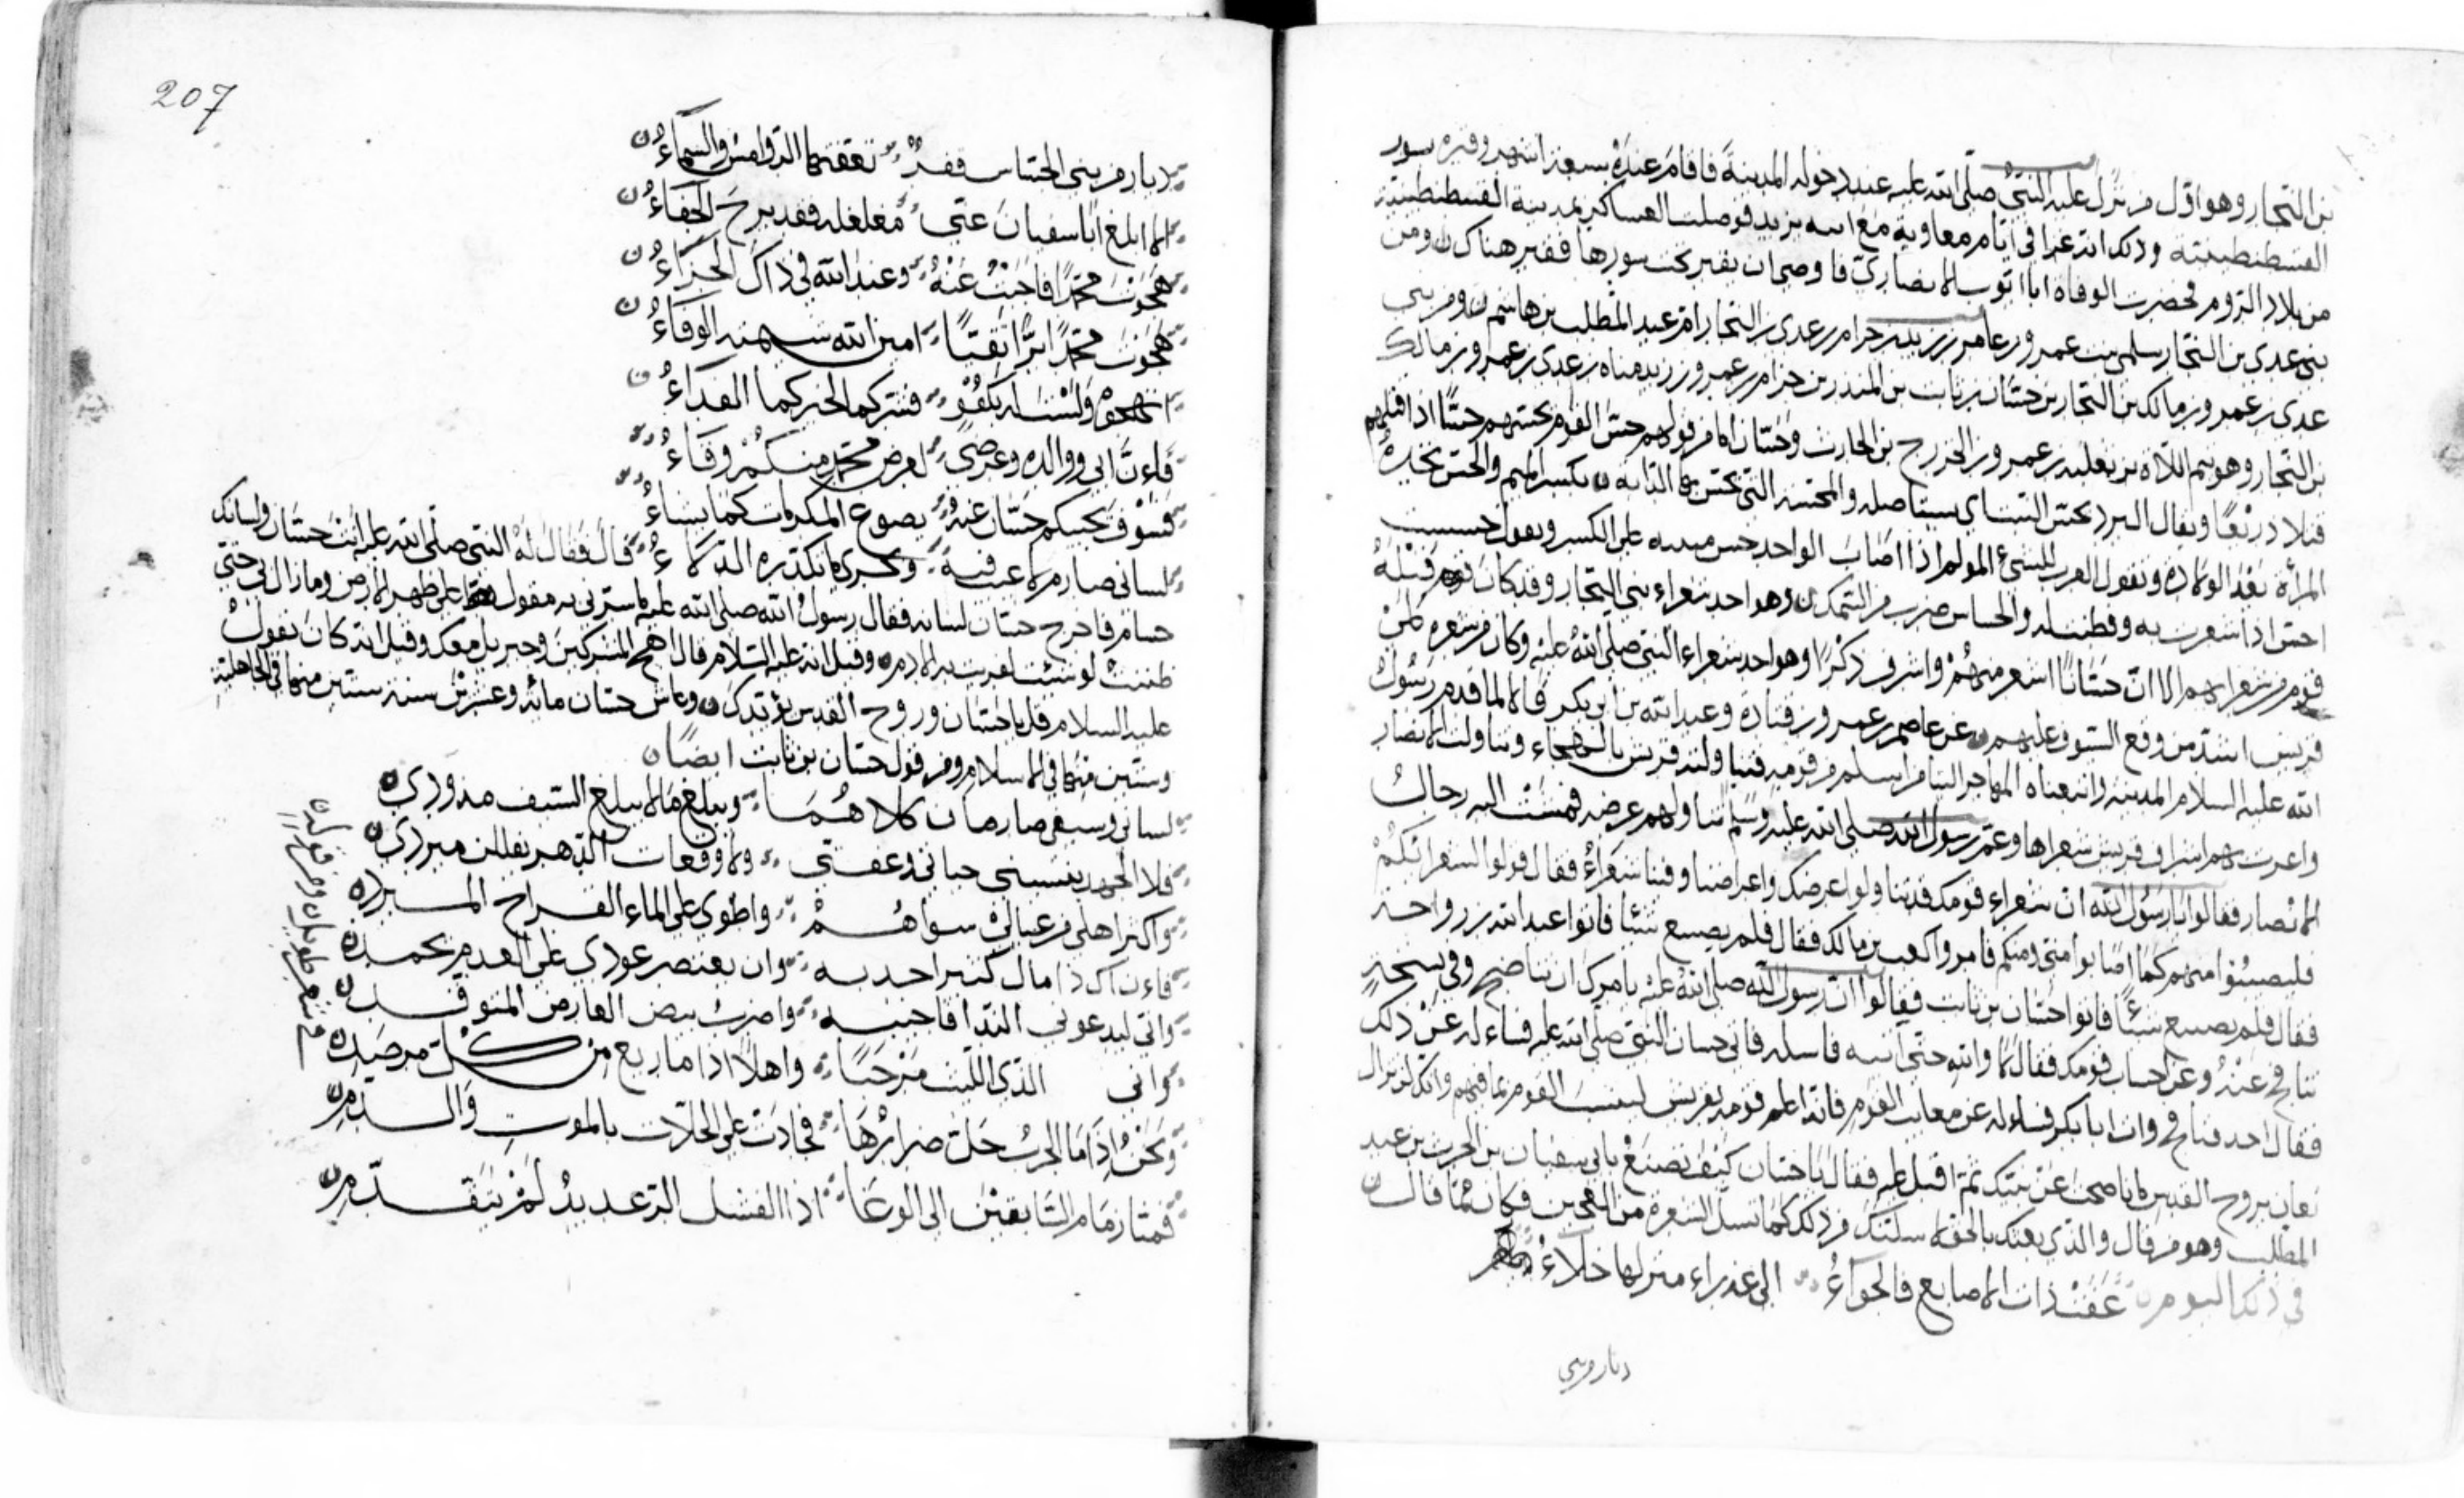 بن النجار وهو اول من نزل عليه النبي صلى الله عليه عند دخوله المدينة فاقام عنده سبعة اشهر وقبره بسور
القسطنطينية وذلك انه غزا في ايام معاوية مع ابنه يزيد فوصلت العساكر بمدينة القسطنطينية
من بلاد الروم فحضرت الوفاه ابا ايوب الانصاري فاوصى ان يقبر تحت سورها فقبر هناك ن ومن
بني عدي بن النجار سلمى بنت عمرو بن عامر بن زيد بن حرام بن عدي بن النجار ام عبد المطلب بن هاشم ن ومن بني
عدي بن عمرو بن مالك بن النجار بن حسان بن ثابت بن المنذر بن حرام بن عمرو بن زيد مناه بن عدي بن عمرو بن مالك
بن النجار وهو تيم اللاه بن ثعلبه بن عمرو بن الخزرج بن الحارث وحسان اما من قولهم حس القوم يحسهم حسًّا اذا قتلهم
قتلا ذريعًا ويقال البرد يحس النبت اي يستاصله والمحسه التي تحس بها الدابه ن بكسر الميم والحس تجده
المرأه بعد الولاده وتقول العرب للشيء المولم اذا اصاب الواحد حس مبنيه على الكسر ويقول حسست
احس اذا شعرت به وفطنت له والحساس ضرب من السمك ن وهو احد شعراء بني النجار وقد كان قبله
قوم من شعرايهم الا ان حسانًا اشعر منهم واشرف ذكرًا وهو احد شعراء النبي صلى الله عليه وكان من شعره على
قريش اشد من وقع السيوف عليهم ن عن عاصم بن عمرو بن قتادة وعبد الله بن ابي بكر قالا لما قدم رسول
الله عليه السلام المدينه واتبعناه المهاجر الينا من اسلم من قومه فينا ولته قريش بالهجاء وتناولت الانصار
واغرت بهم اشراف قريش شعراها وعم رسول الله صلى الله عليه وسلم تناولهم عرضه فمشت اليه رجال
الانصار فقالوا يا رسول الله ان شعراء قومك قد تناولوا عرضك واعراضنا وفينا شعراءُ فقال قولوا لشعرائكم
فليصيبوا منهم كما اصابوا مني ومنكم فامروا كعب بن مالك فقال فلم يصنع شيئا فاتوا عبد الله بن رواحه
فقال فلم يصنع شيئًا فاتوا حسان بن ثابت فقالوا ان رسول الله صلى الله عليه يامرك ان تناضح وفي نسخه
تنافح عنه وعن احساب قومك فقال لا والله حتى اتيه فاسله فاتى حسان النبي صلى الله عليه فساءله عن ذلك
فقال احد فنافح وات ابا بكر فساءله عن معايب القوم فانه اعلم قومه بقريش القوم بما فيهم وانك لن تزال
تعان بروح القدس ما ناضحت عن نبيك ثم اقبل عليه فقال يا حسان كيف تصنع بابي سفيان بن الحرث بن عبد
المطلب وهو من قال والذي بعثك بالحق لا سلنك من ذلك كما تسل الشعرة من العجين فكان مما قال ن
في ذلك اليوم ن عفت ذات الاصابع فالجواءُ الى عذراء منزلها خلاءُ
ديار من بني
207
ديار من بني الحسحاس قفرٌ تعفيها الروامس والسماءُ ن
الا ابلغ ابا سفيان عني مغلغله فقد برح الخفاءُ ن
هجوت محمدًا فاجبتُ عنهُ وعند الله في ذاك الجزاءُ ن
هجوت محمدًا برًّا تقيًّا امين الله شيمته الوفاءُ ن
اتهجوه ولست له بكفوٍ فشركما لخيركما الفداءُ ن
فاءن ابي ووالده وعرضي لعرض محمدٍ منكم وقاءُ
فسوف يحبيكم حسان عنه يصوغ المكرمات كما يشاءُ
لساني صارم لا عيب فيه وبحري لا تكدره الدلاءُ قال فقال له النبي صلى الله عليه انت حسان ولسانك
حسام فاخرج حسان لسانه فقال رسول الله صلى الله عليه ما يسرني به مقول على ظهر الارض وما زال بي حتى
ظننت لو شئت لفريت به الادم ن وقيل انه عليه السلام قال اهج المشركين وجبريل معك وقيل انه كان يقول
عليه السلام قل يا حسان وروح القدس يؤيدك ن وعاش حسان مائه وعشرين سنه ستين منها في الجاهلية
وستين منها في الاسلام ومن قول حسان بن ثابت ايضًا ن
لساني وسيفي صارمان كلاهما ويبلغ ما لا يبلغ السيف مذودي ن
فلا الجهد ينسيني حياني وعفتي ولا وقعات الدهر يفللن مبردي ن
واكثر اهلي من عيالٍ سواهم واطوي على الماء القراح المبرد ن
فاءن اك ذا مال كثير اجد به وان يعتصر عودي على الجهد يحمد ن
واني ليدعوني الندا فاجيبه واضرب بيض العارض المتوقد ن
واني الذي الليث مرحبًا واهلًا اذا ما ريع من كل مرصد ن
ونحن اذا ما الحرب حل صرارها فجادت على الحلاب بالموت والدم ن
فمنا زمام السابقين الى الوغا اذا الفشل الرعديد لم يتقدم ن